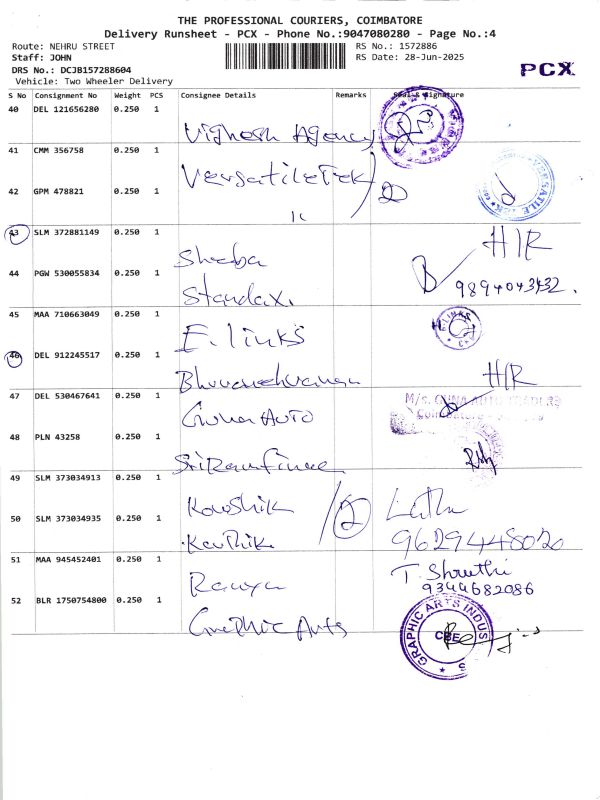 THE PROFESSIONAL COURIERS, COIMBATORE
Delivery Runsheet - PCX - Phone No.:9047080280 - Page No.:4
Route: NEHRU STREET
RS No.: 1572886
Staff: JOHN
RS Date: 28-Jun-2025
DRS No.: DCJB157288604
PCX
Vehicle: Two Wheeler Delivery
S No Consignment No Weight PCS Consignee Details Remarks Seal & Signature
40 DEL 121656280 0.250 1
Vignesh Agency
41 CMM 356758 0.250 1
VersatileTek
42 GPM 478821 0.250 1
2
11
43 SLM 372881149 0.250 1
H/R
Sheeba
44 PGW 530055834 0.250 1
9894043432.
Standax.
45 MAA 710663049 0.250 1
E-LINKS
E.links
46 DEL 912245517 0.250 1
H/R
47 DEL 530467641 0.250 1
M/s. GUNA AUTO TRADERS
Guna Auto
48 PLN 43258 0.250 1
49 SLM 373034913 0.250 1
Koushik
2
Latha
50 SLM 373034935 0.250 1
9629448020
51 MAA 945452401 0.250 1
T. Shruthi
9344682086
Ramya
52 BLR 1750754800 0.250 1
Graphic Arts
GRAPHIC ARTS INDUS
CBE